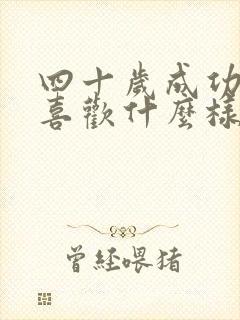 四十歲成功
喜歡什麼樣
曾經喂猪